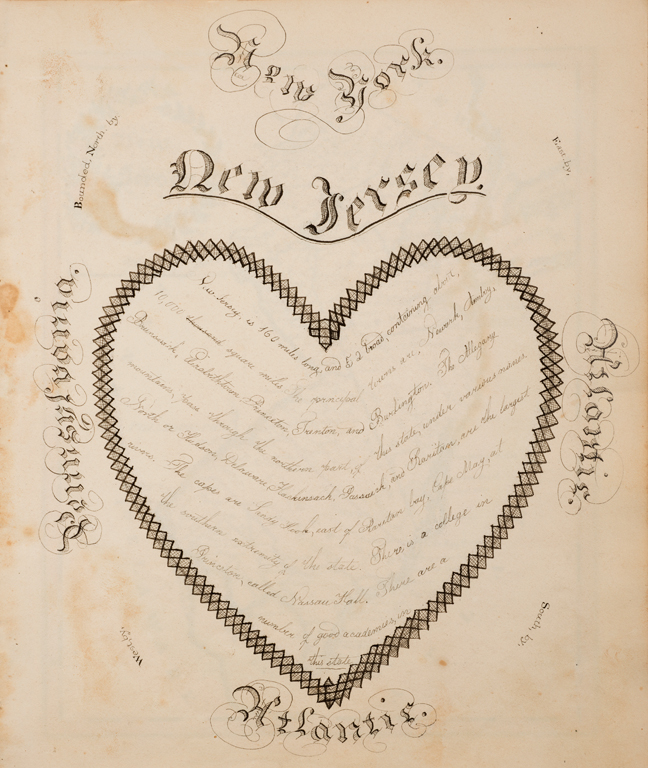 New York.
Bounded, North, by,
East, by,
New Jersey.
Pennsylvania.
Atlantic.
New Jersey, is 160 miles long, and 52 broad, containing, about,
10,000 square miles. The principal towns are, Newark, Amboy,
Brunswick, Elizabethtown, Princeton, Trenton, and Burlington. The Allegany
mountains, pass through the northern part, of this state, under various names
North or Hudson, Delaware, Hackensack, Passaick and Raritan, are the largest
rivers. The capes are Sandy Hook, east of Raritan bay, Cape May, at
the southern extremity of the state. There is a college in
Princeton, called Nassau Hall. There are a
number of good academies, in
this state
West, by,
South, by,
Atlantic.